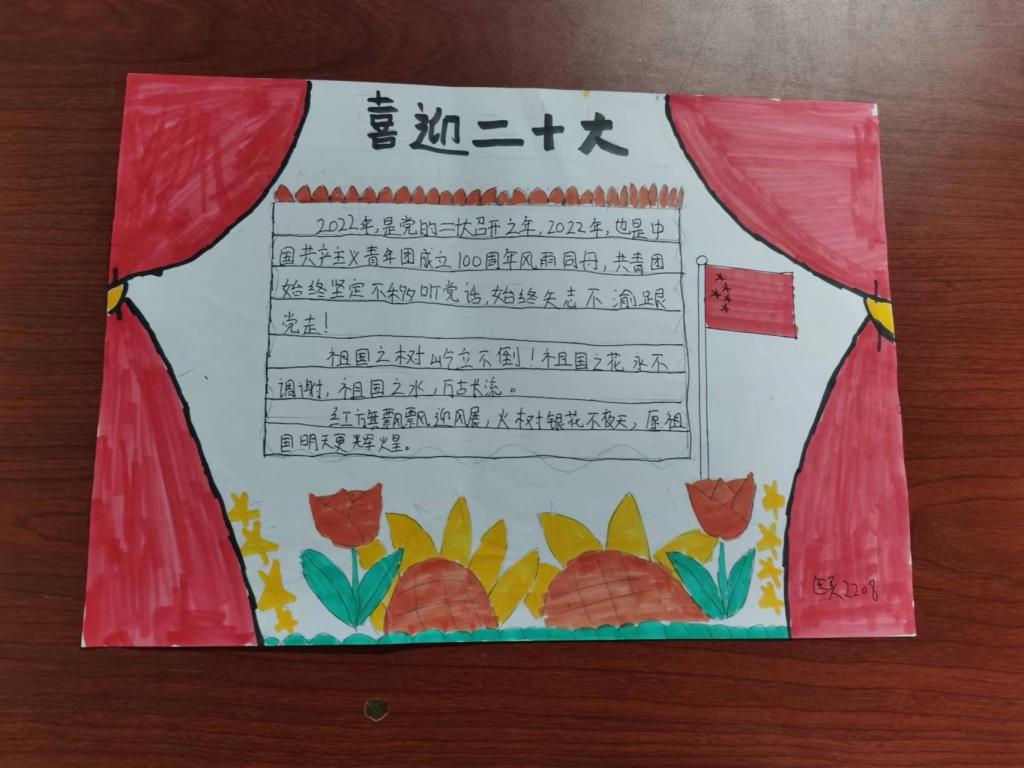 喜迎二十大
2022年,是党的二十大召开之年,2022年,也是中
国共产主义青年团成立100周年风雨同舟,共青团
始终坚定不移听党话,始终矢志不渝跟
党走!
祖国之树屹立不倒!祖国之花永不
凋谢,祖国之水,万古长流。
红旗飘飘迎风展,火树银花不夜天,愿祖
国明天更辉煌。
2208